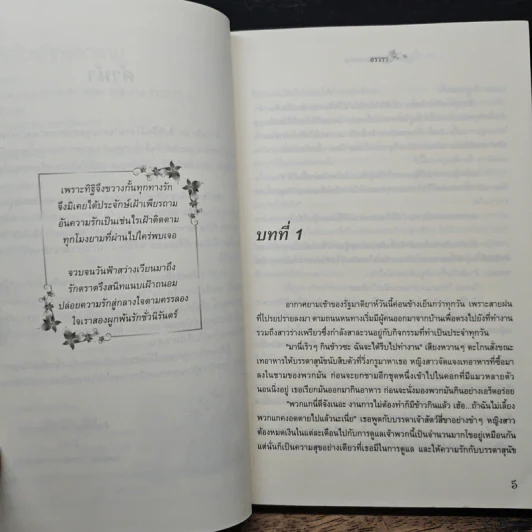 เพราะทิฐิจึงขวางกั้นทุกทางรัก
จึงมิเคยได้ประจักษ์เฝ้าเพียรถาม
อันความรักเป็นเช่นไรเฝ้าติดตาม
ทุกโมงยามที่ผ่านไปใคร่พบเจอ
จวบจนวันฟ้าสว่างเวียนมาถึง
รักตราตรึงสนิทแนบเฝ้าถนอม
ปล่อยความรักสู่กลางใจตามครรลอง
ใจเราสองผูกพันรักชั่วนิรันดร์
อรวรา
บทที่ 1
อากาศยามเช้าของรัฐมาดิยาห์วันนี้ค่อนข้างเย็นกว่าทุกวัน เพราะสายฝน
ที่โปรยปรายลงมา ตามถนนหนทางเริ่มมีผู้คนออกมาจากบ้านเพื่อตรงไปยังที่ทำงาน
รวมถึงสาวร่างเพรียวซึ่งกำลังสาละวนอยู่กับกิจกรรมที่ทำเป็นประจำทุกวัน
"มานี่เร็วๆ กินข้าวซะ ฉันจะได้รีบไปทำงาน" เสียงหวานๆ ตะโกนสั่งขณะ
เทอาหารให้บรรดาสุนัขนับสิบตัวที่วิ่งกรูมาหาเธอ หญิงสาวจัดแจงเทอาหารที่ซื้อมา
ลงในชามของพวกมัน ก่อนจะยกชามอีกชุดหนึ่งเข้าไปในคอกที่มีแมวหลายตัว
นอนนิ่งอยู่ เธอเรียกมันออกมากินอาหาร ก่อนจะนั่งมองพวกมันกินอย่างเอร็ดอร่อย
"พวกแกนี่ดีจังเนอะ งานการไม่ต้องทำก็มีข้าวกินแล้ว เฮ้อ...ถ้าฉันไม่เลี้ยง
พวกแกคงอดตายไปแล้วนะเนี่ย" เธอพูดกับบรรดาเจ้าสัตว์สี่ขาอย่างขำๆ หญิงสาว
ต้องหมดเงินในแต่ละเดือนไปกับการดูแลเจ้าพวกนี้เป็นจำนวนมากโขอยู่เหมือนกัน
แต่นั่นก็เป็นความสุขอย่างเดียวที่เธอมีในการดูแล และให้ความรักกับบรรดาสุนัข
5